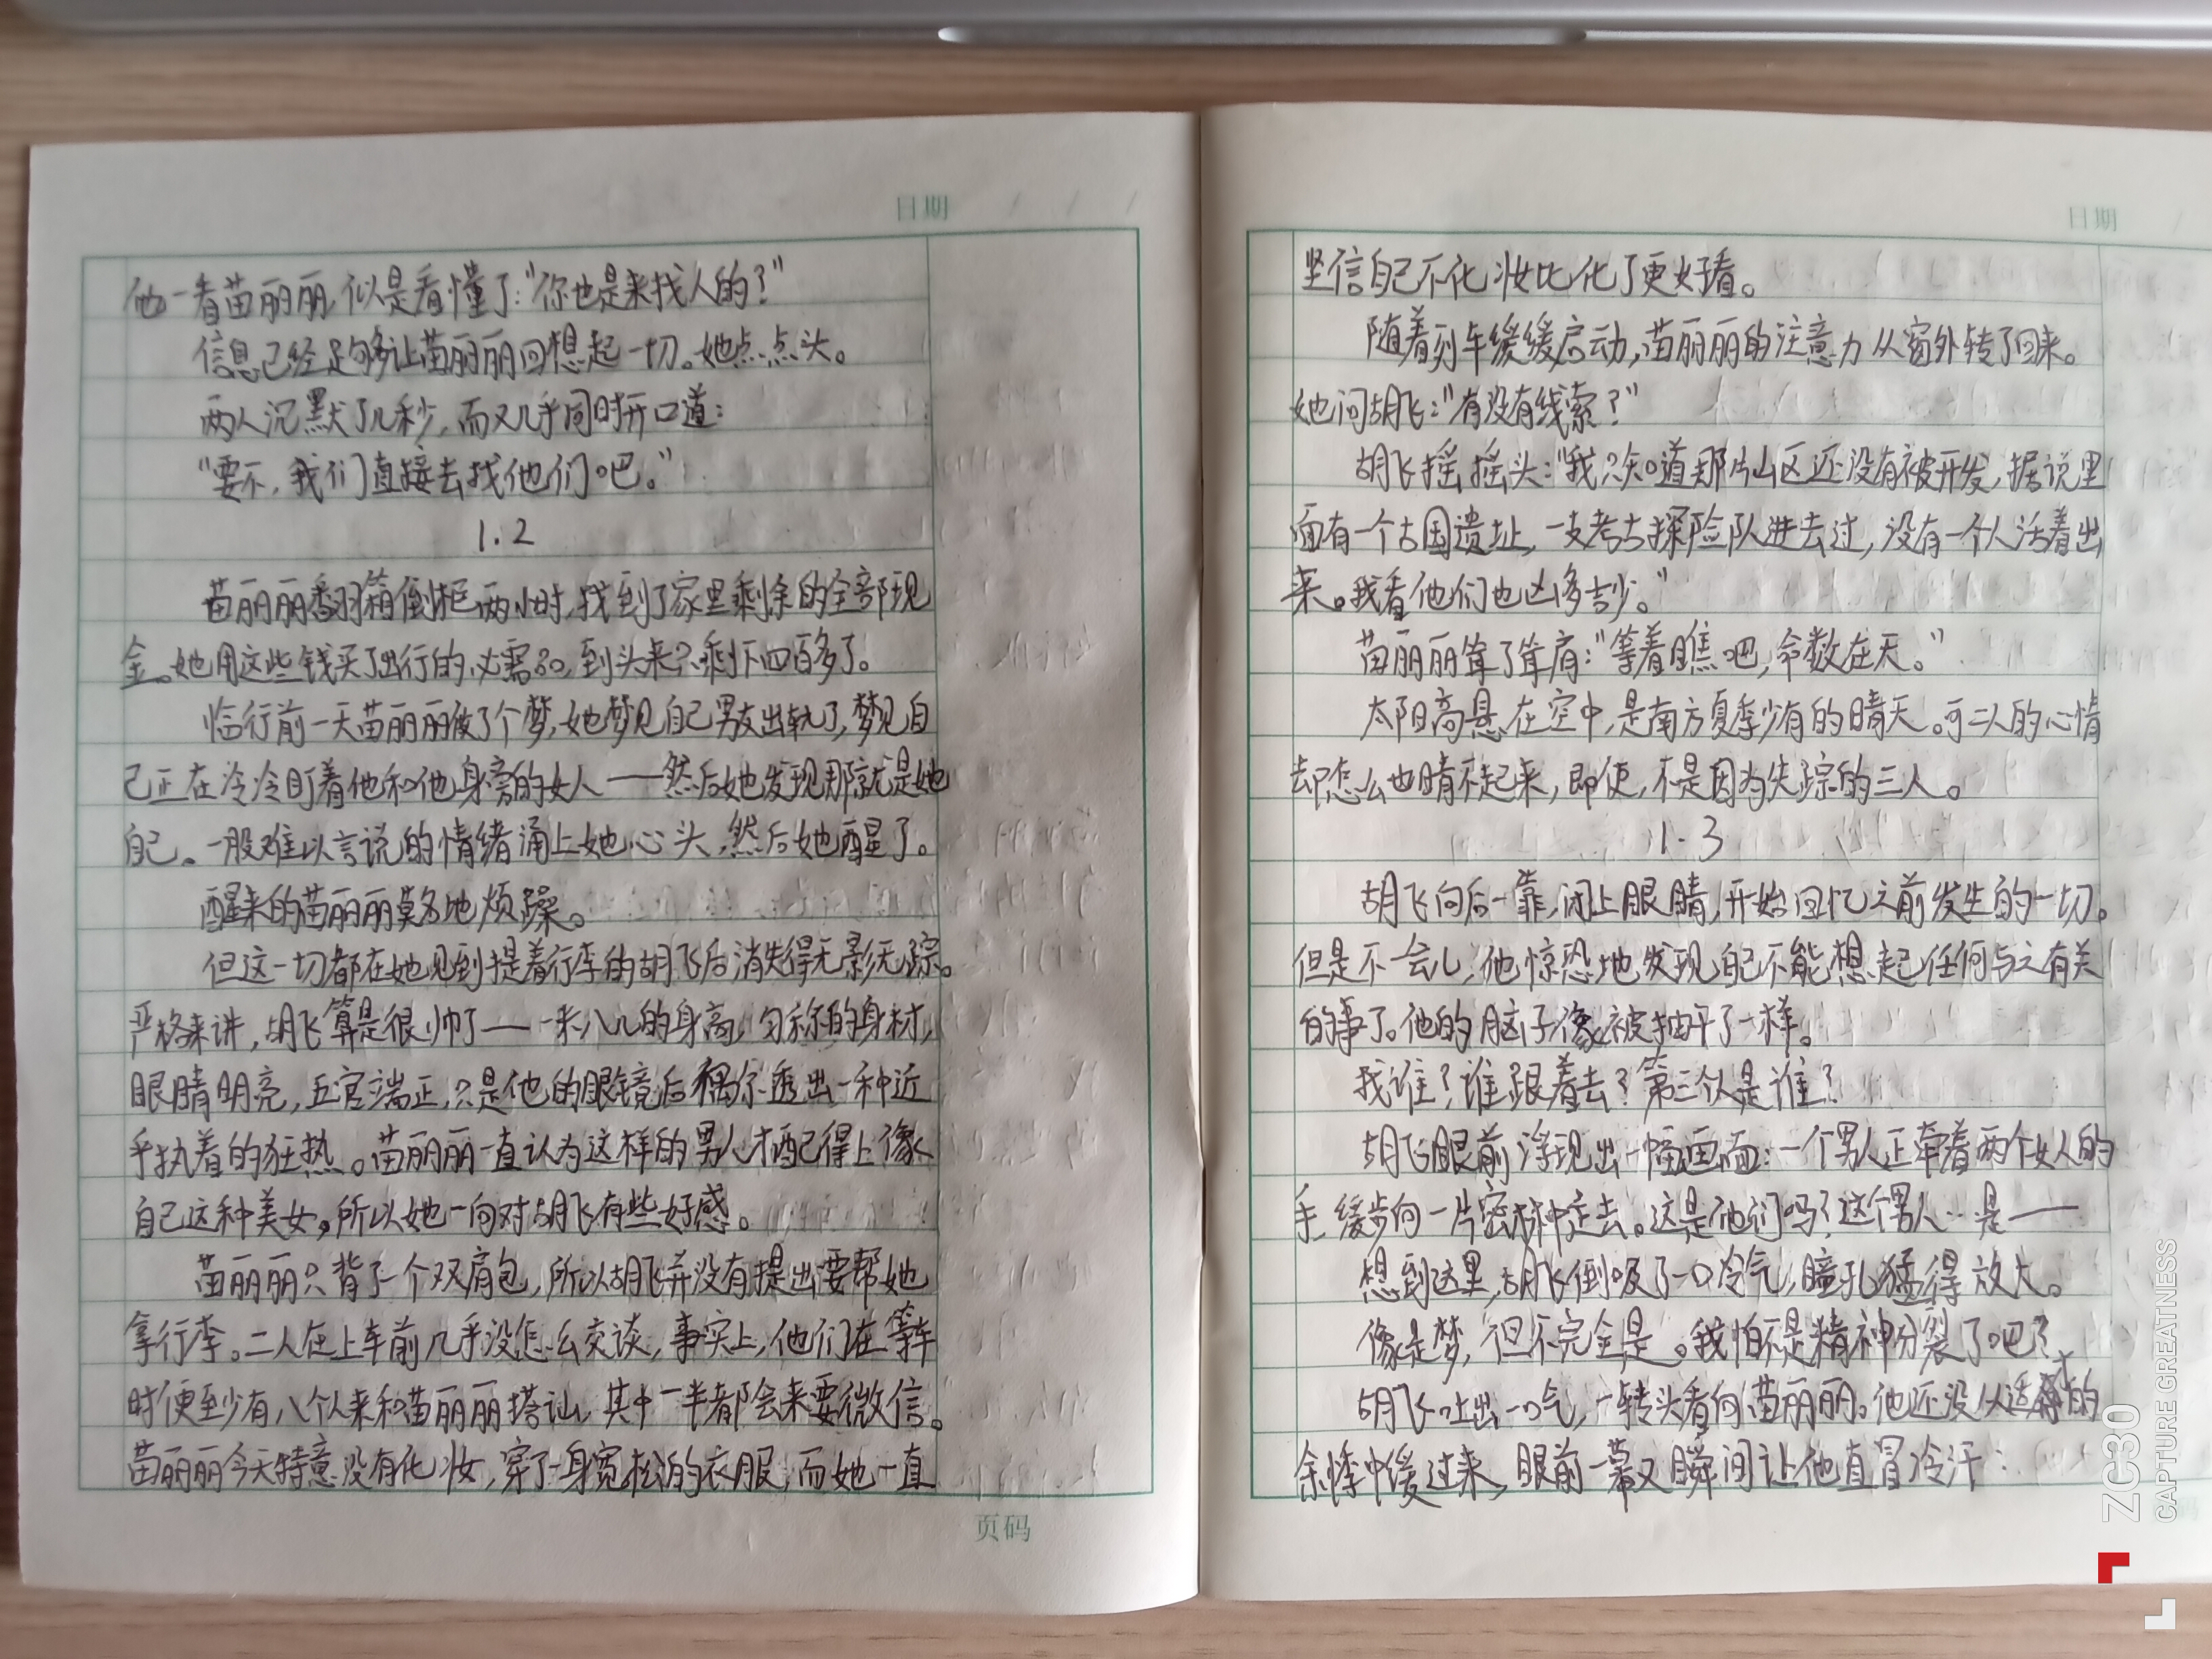 日期 / / /
他一看苗丽丽,似是看懂了:“你也是来找人的?”
信息已经足够让苗丽丽回想起一切。她点点头。
两人沉默了几秒,而又几乎同时开口道:
“要不,我们直接去找他们吧。”
1.2
苗丽丽翻箱倒柜两小时,找到了家里剩余的全部现
金。她用这些钱买了出行的必需品,到头来只剩下四百多了。
临行前一天苗丽丽做了个梦,她梦见自己男友出轨了,梦见自
己正在冷冷盯着他和他身旁的女人——然后她发现那就是她
自己。一股难以言说的情绪涌上她心头,然后她醒了。
醒来的苗丽丽莫名地烦躁。
但这一切都在她见到提着行李的胡飞后消失得无影无踪。
严格来讲,胡飞算是很帅了——一米八几的身高,匀称的身材,
眼睛明亮,五官端正,只是他的眼镜后偶尔透出一种近
乎执着的狂热。苗丽丽一直认为这样的男人才配得上像
自己这种美女,所以她一向对胡飞有些好感。
苗丽丽只背了一个双肩包,所以胡飞并没有提出要帮她
拿行李。二人在上车前几乎没怎么交谈,事实上,他们在等车
时便至少有八个人来和苗丽丽搭讪,其中一半都会来要微信。
苗丽丽今天特意没有化妆,穿了一身宽松的衣服,而她一直
页码
日期 /
坚信自己不化妆比化了更好看。
随着列车缓缓启动,苗丽丽的注意力从窗外转了回来。
她问胡飞:“有没有线索?”
胡飞摇摇头:“我只知道那片山区还没有被开发,据说里
面有一个古国遗址,一支考古探险队进去过,没有一个人活着出
来。我看他们也凶多吉少。”
苗丽丽耸了耸肩:“等着瞧吧,命数在天。”
太阳高悬在空中,是南方夏季少有的晴天。可二人的心情
却怎么也晴不起来,即使,不是因为失踪的三人。
1.3
胡飞向后一靠,闭上眼睛,开始回忆之前发生的一切。
但是不一会儿,他惊恐地发现自己不能想起任何与之有关
的事了。他的脑子像被抽干了一样。
找谁?谁跟着去?第三个人是谁?
胡飞眼前浮现出一幅画面:一个男人正牵着两个女人的
手,缓步向一片密林中走去。这是他们吗?这个男人…是——
想到这里,胡飞倒吸了一口冷气,瞳孔猛得放大。
像是梦,但不完全是。我怕不是精神分裂了吧?
胡飞吐出一口气,一转头看向苗丽丽。他还没从适才的
余悸中缓过来,眼前一幕又瞬间让他直冒冷汗:
ZC30
CAPTURE GREATNESS